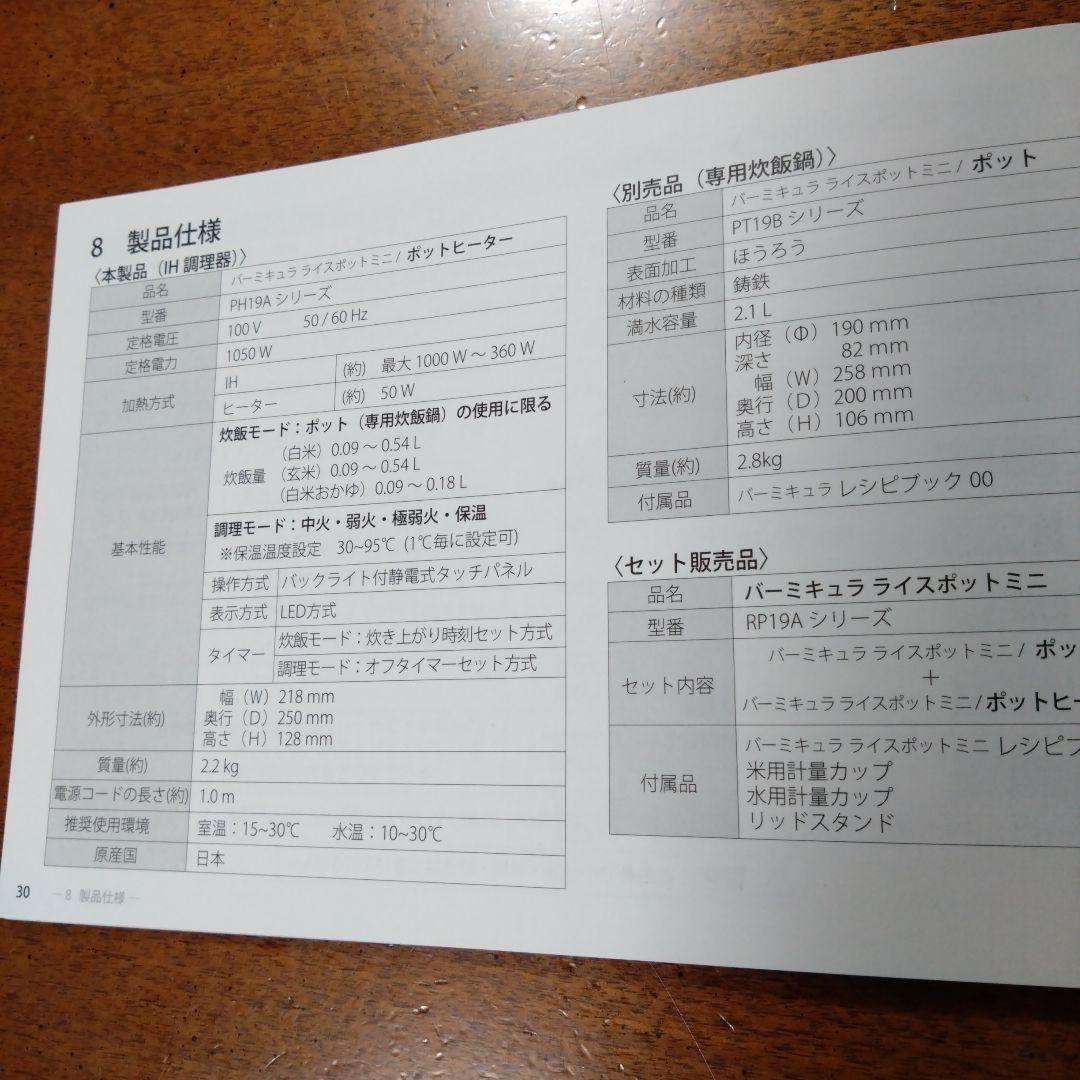 8 製品仕様
〈本製品（IH 調理器）〉
品名 バーミキュラ ライスポットミニ / ポットヒーター
型番 PH19A シリーズ
定格電圧 100 V 50 / 60 Hz
定格電力 1050 W
加熱方式 IH (約) 最大 1000 W ～ 360 W
ヒーター (約) 50 W
基本性能
炊飯モード：ポット（専用炊飯鍋）の使用に限る
炊飯量 （白米）0.09 ～ 0.54 L
（玄米）0.09 ～ 0.54 L
（白米おかゆ）0.09 ～ 0.18 L
調理モード：中火・弱火・極弱火・保温
※保温温度設定 30~95℃ (1℃毎に設定可)
操作方式 バックライト付静電式タッチパネル
表示方式 LED方式
タイマー 炊飯モード：炊き上がり時刻セット方式
調理モード：オフタイマーセット方式
外形寸法(約) 幅（W）218 mm
奥行（D）250 mm
高さ（H）128 mm
質量(約) 2.2 kg
電源コードの長さ(約) 1.0 m
推奨使用環境 室温：15~30℃ 水温：10~30℃
原産国 日本
30 ―8 製品仕様―
〈別売品（専用炊飯鍋）〉
品名 バーミキュラ ライスポットミニ / ポット
型番 PT19B シリーズ
表面加工 ほうろう
材料の種類 鋳鉄
満水容量 2.1 L
寸法(約) 内径（Φ）190 mm
深さ 82 mm
幅（W）258 mm
奥行（D）200 mm
高さ（H）106 mm
質量(約) 2.8kg
付属品 バーミキュラ レシピブック 00
〈セット販売品〉
品名 バーミキュラ ライスポットミニ
型番 RP19A シリーズ
セット内容 バーミキュラ ライスポットミニ / ポッ
＋
バーミキュラ ライスポットミニ / ポットヒー
付属品 バーミキュラ ライスポットミニ レシピブ
米用計量カップ
水用計量カップ
リッドスタンド